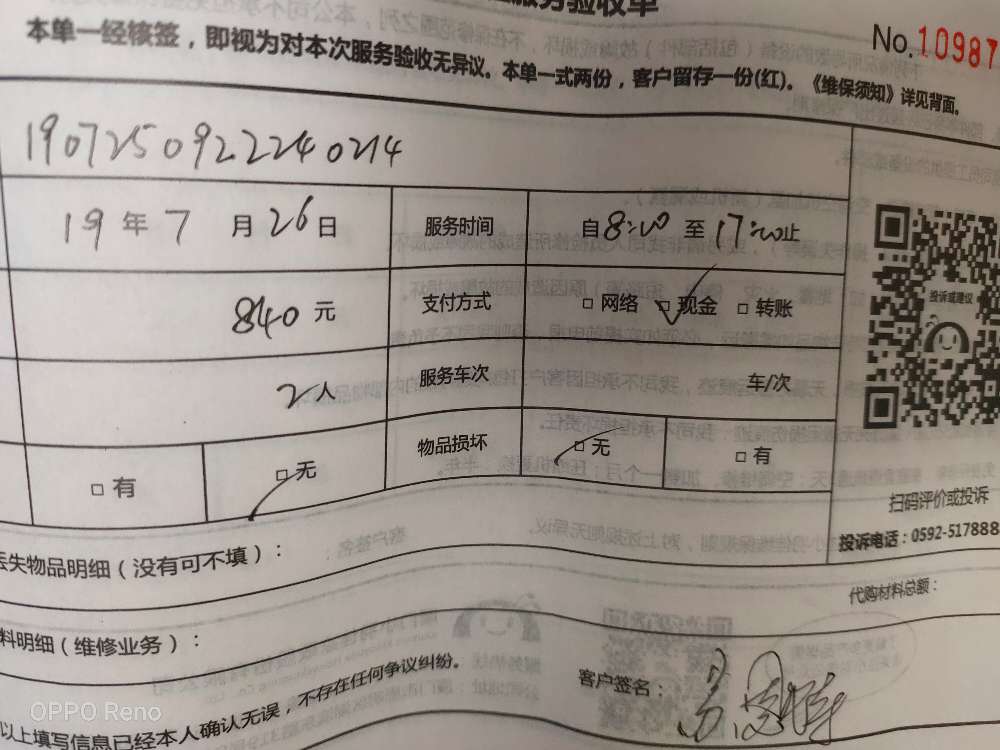 服务验收单
No.10987
本单一经核签，即视为对本次服务验收无异议。本单一式两份，客户留存一份(红)。《维保须知》详见背面。
190725092240214
19 年 7 月 26 日 服务时间 自 8:00 至 17:00 止
840 元 支付方式 □ 网络 □ 现金 □ 转账
2 人 服务车次 车/次
□ 有 □ 无 物品损坏 □ 无 □ 有
投诉或建议
扫码评价或投诉
投诉电话：0592-517888
丢失物品明细（没有可不填）：
代购材料总额：
料明细（维修业务）：
以上填写信息已经本人确认无误，不存在任何争议纠纷。
客户签名：
OPPO Reno